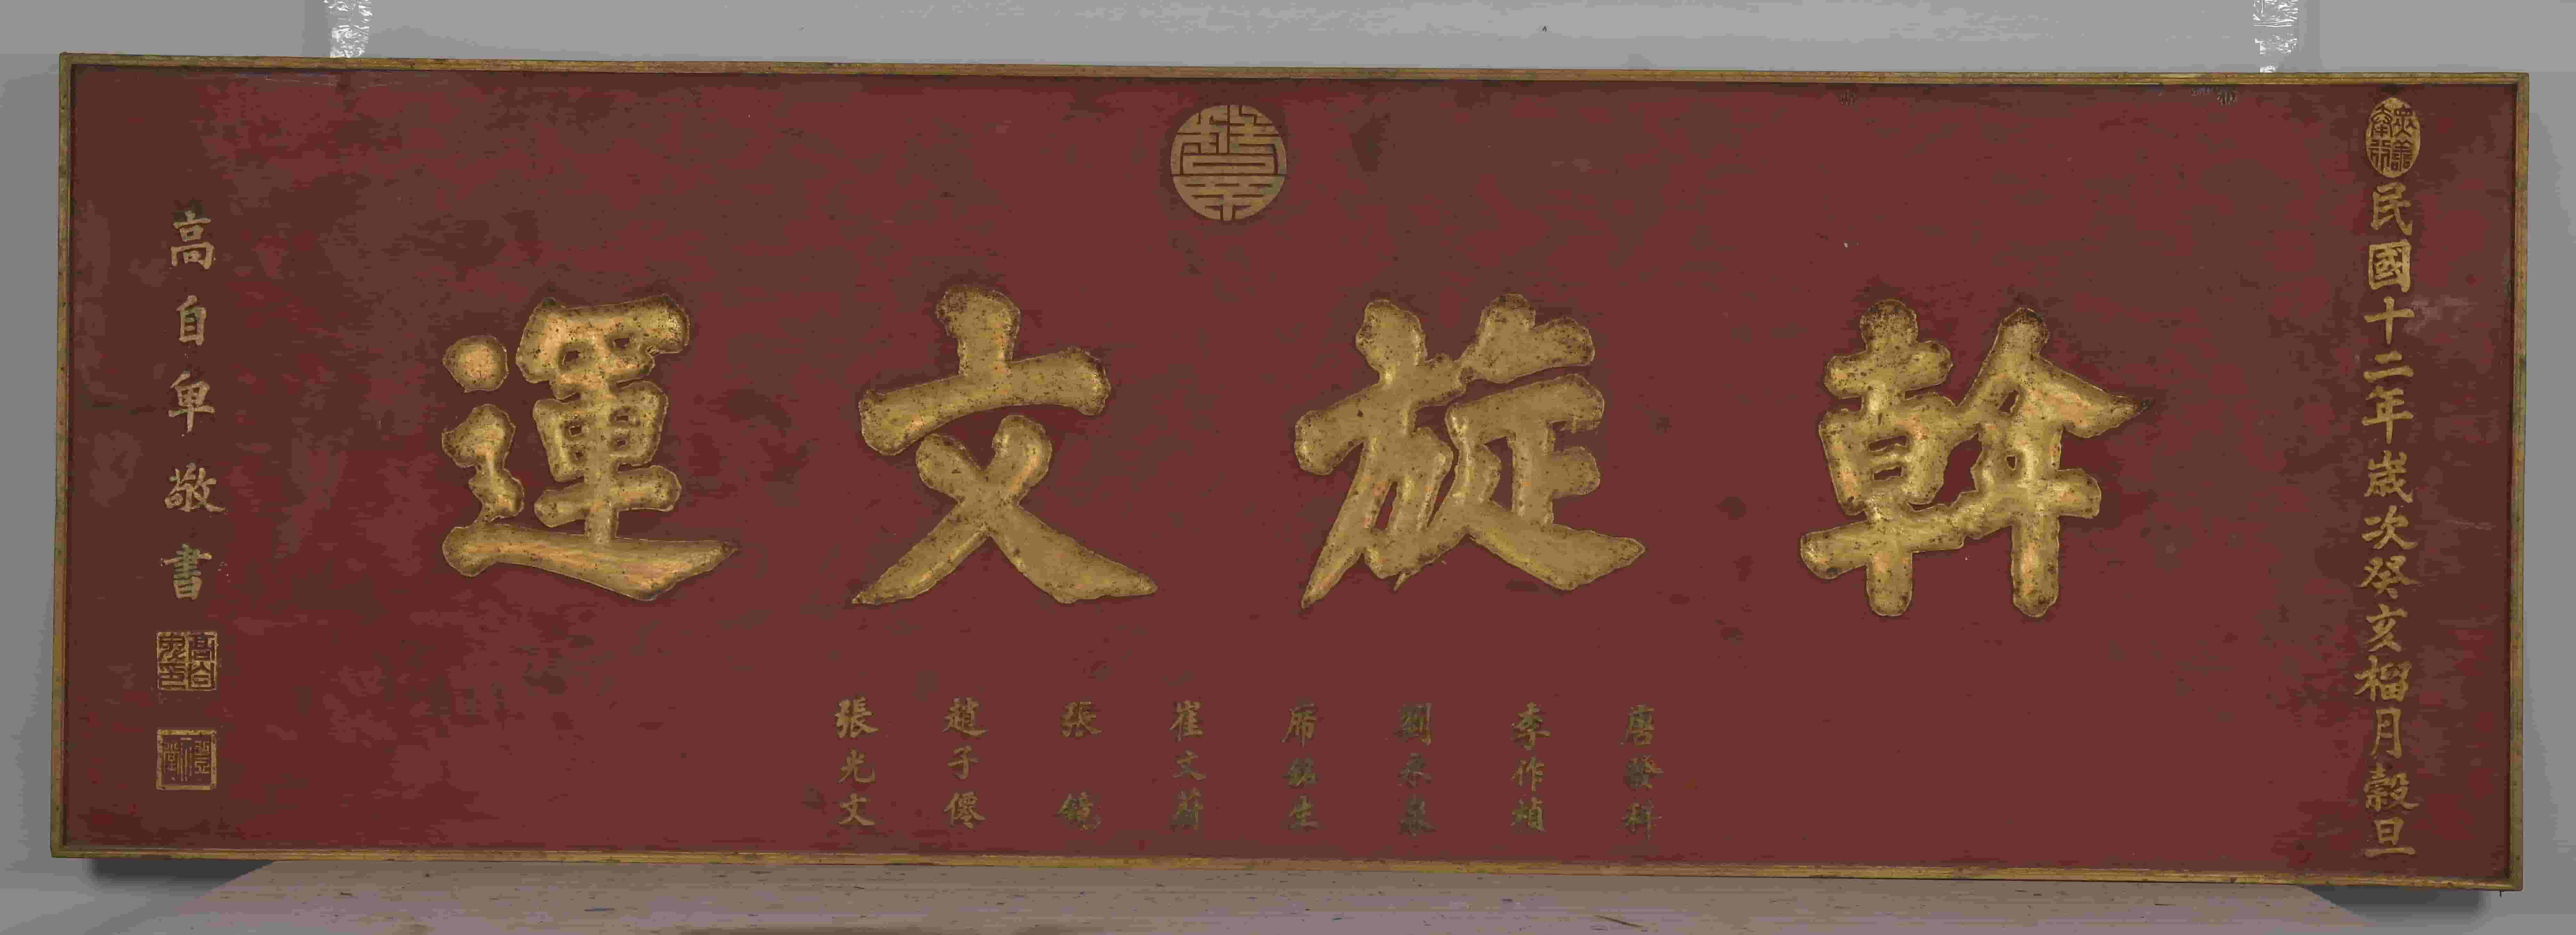 民國十二年歲次癸亥榴月穀旦
斡旋文運
唐發科
李作楨
劉永泉
席銘生
崔文蔚
張鏡
趙子僊
張光文
高自卑敬書